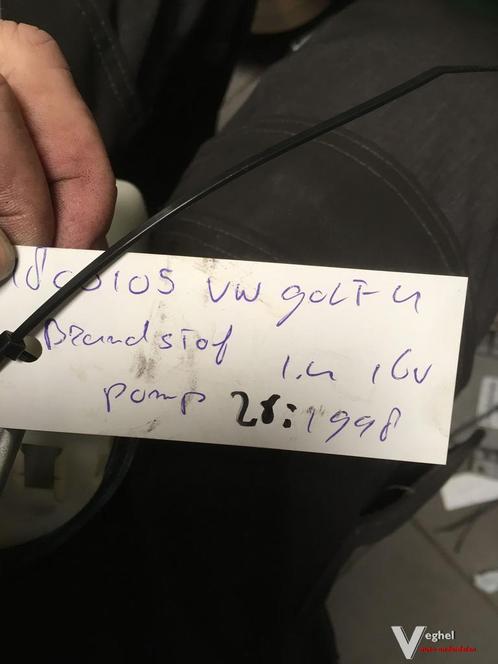 1800105 VW golF 4
Brandstof 1.4 16v
pomp 28:1998
Veghel